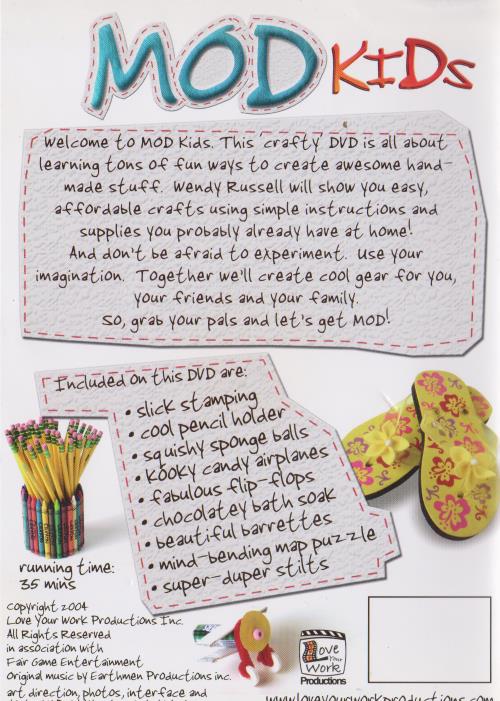 MOD KIDS
Welcome to MOD Kids. This 'crafty' DVD is all about
learning tons of fun ways to create awesome hand-
made stuff. Wendy Russell will show you easy,
affordable crafts using simple instructions and
supplies you probably already have at home!
And don't be afraid to experiment. Use your
imagination. Together we'll create cool gear for you,
your friends and your family.
So, grab your pals and let's get MOD!
Included on this DVD are:
• slick stamping
• cool pencil holder
• squishy sponge balls
• kooky candy airplanes
• fabulous flip-flops
• chocolatey bath soak
• beautiful barrettes
• mind-bending map puzzle
• super-duper stilts
running time:
35 mins
Copyright 2004
Love Your Work Productions Inc.
All Rights Reserved
in association with
Fair Game Entertainment
Original music by Earthmen Productions inc.
art direction, photos, interface and
Love
Your
Work
Productions
www.loveyourworkproductions.com